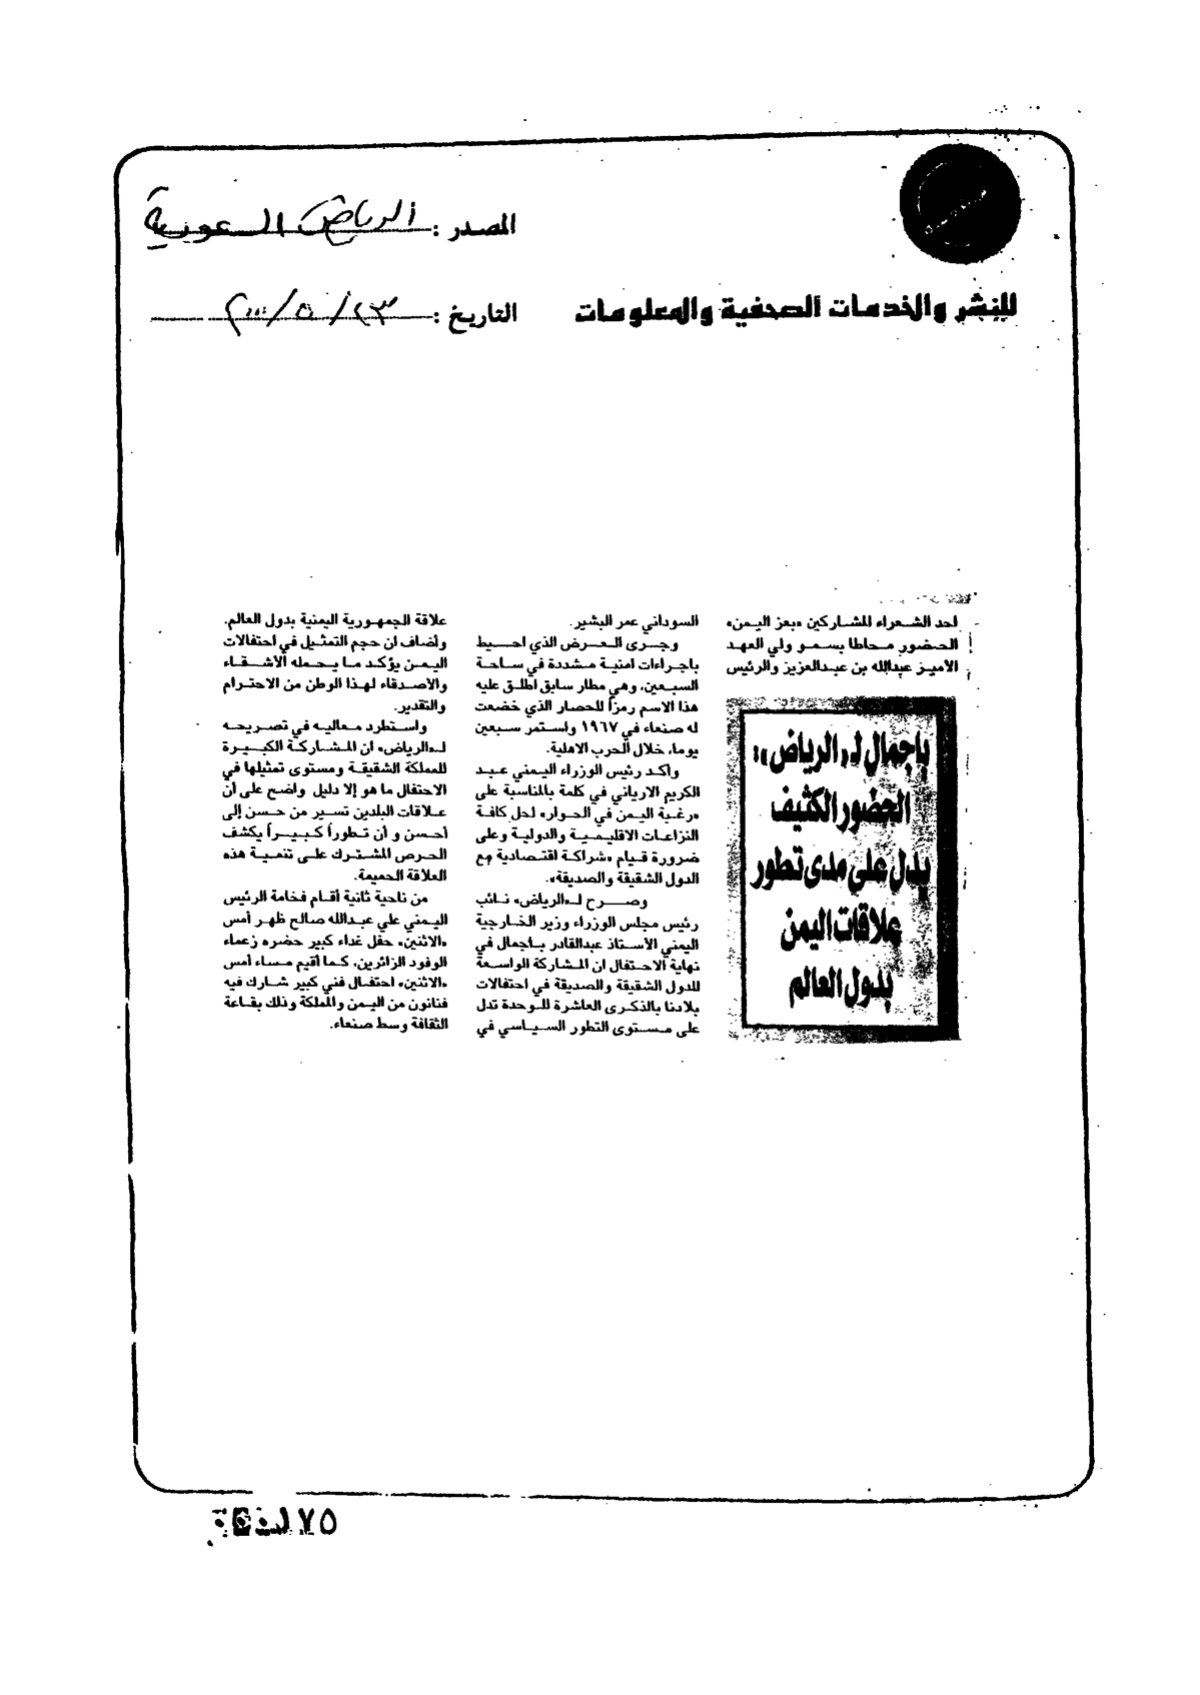 المصدر : الرياض السعودية
للنشر والخدمات الصحفية والمعلومات
التاريخ : ٢٣/٥/٢٠٠٠
احد الشعراء المشاركين «بعز اليمن»
الحضور محاطا بسمو ولي العهد
الامير عبدالله بن عبدالعزيز والرئيس
باجمال لـ«الرياض»:
الحضور الكثيف
يدل على مدى تطور
علاقات اليمن
بدول العالم
السوداني عمر البشير.
وجرى العرض الذي احيط
باجراءات امنية مشددة في ساحة
السبعين، وهي مطار سابق اطلق عليه
هذا الاسم رمزاً للحصار الذي خضعت
له صنعاء في ١٩٦٧ واستمر سبعين
يوما، خلال الحرب الاهلية.
وأكد رئيس الوزراء اليمني عبد
الكريم الارياني في كلمة بالمناسبة على
«رغبة اليمن في الحوار» لحل كافة
النزاعات الاقليمية والدولية وعلى
ضرورة قيام «شراكة اقتصادية مع
الدول الشقيقة والصديقة».
وصرح لـ«الرياض» نائب
رئيس مجلس الوزراء وزير الخارجية
اليمني الأستاذ عبدالقادر باجمال في
نهاية الاحتفال ان المشاركة الواسعة
للدول الشقيقة والصديقة في احتفالات
بلادنا بالذكرى العاشرة للوحدة تدل
على مستوى التطور السياسي في
علاقة الجمهورية اليمنية بدول العالم.
وأضاف ان حجم التمثيل في احتفالات
اليمن يؤكد ما يحمله الأشقاء
والاصدقاء لهذا الوطن من الاحترام
والتقدير.
واستطرد معاليه في تصريحه
لـ«الرياض» ان المشاركة الكبيرة
للمملكة الشقيقة ومستوى تمثيلها في
الاحتفال ما هو إلا دليل واضح على أن
علاقات البلدين تسير من حسن إلى
أحسن و أن تطوراً كبيراً يكشف
الحرص المشترك على تنمية هذه
العلاقة الحميمة.
من ناحية ثانية أقام فخامة الرئيس
اليمني علي عبدالله صالح ظهر أمس
«الاثنين» حفل غداء كبير حضره زعماء
الوفود الزائرين، كما أقيم مساء أمس
«الاثنين» احتفال فني كبير شارك فيه
فنانون من اليمن والمملكة وذلك بقاعة
الثقافة وسط صنعاء.